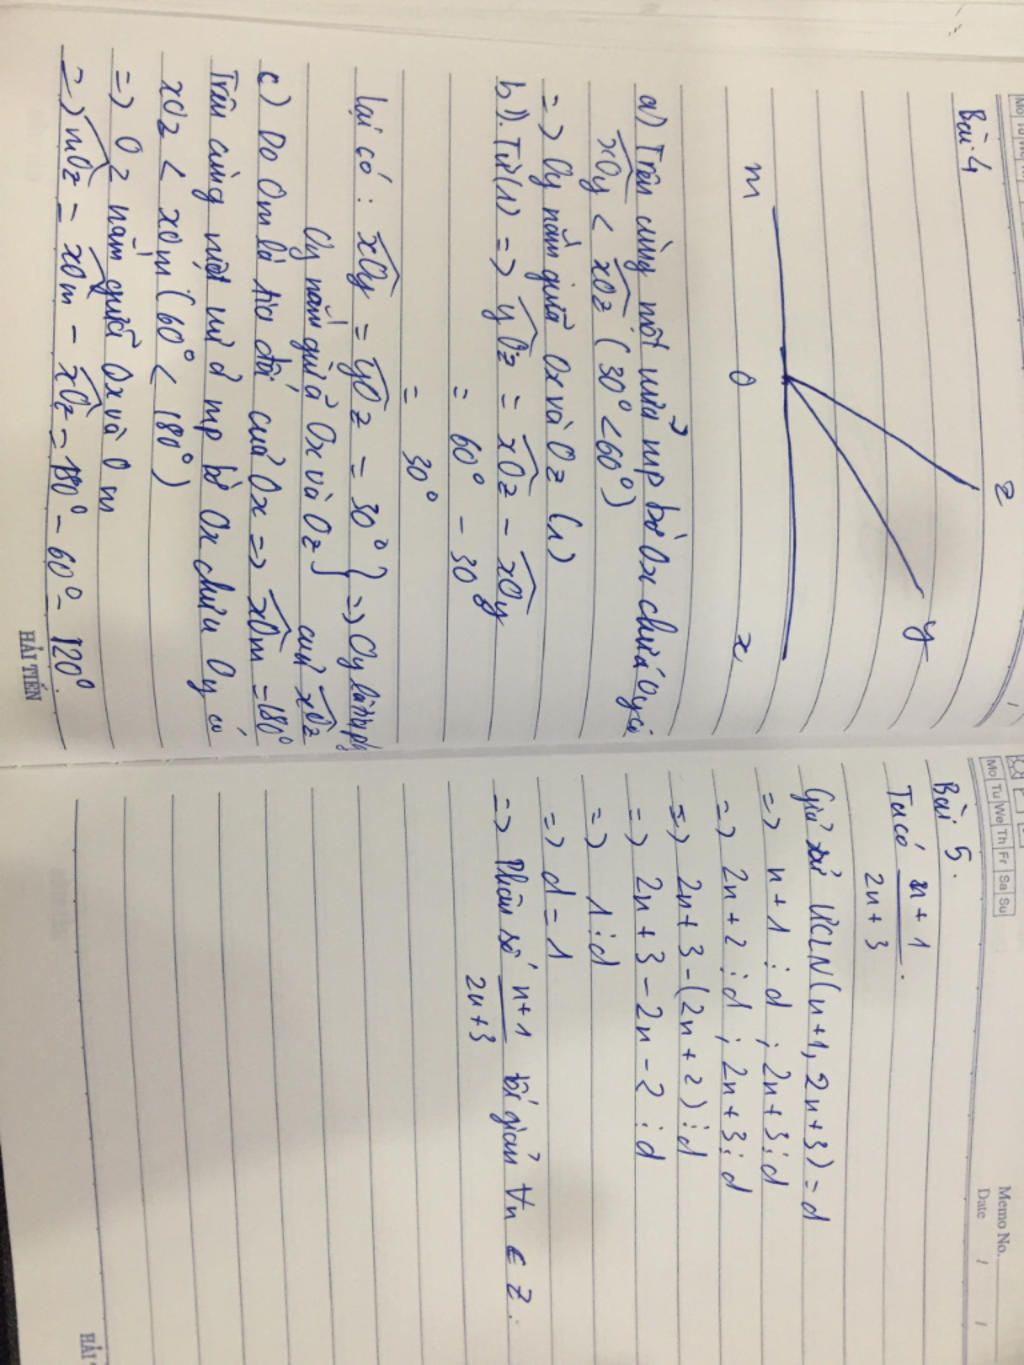 Bài 4
z
y
m
O
x
a) Trên cùng một nửa mp bờ Ox chứa Oy có
xOy < xOz (30° < 60°)
=> Oy nằm giữa Ox và Oz (1)
b) . Từ (1) => yOz = xOz - xOy
= 60° - 30°
= 30°
lại có : xOy = yOz = 30° } => Oy là tia pg
Oy nằm giữa Ox và Oz } của xOz
c) Do Om là tia đối của Ox => xOm = 180°
Trên cùng một mp bờ Ox chứa Oy có
xOz < xOm (60° < 180°)
=> Oz nằm giữa Ox và Om
=> mOz = xOm - xOz = 180° - 60° = 120°.
HẢI TIẾN
Mo Tu We Th Fr Sa Su
Memo No.
Date / /
Bài 5.
Ta có n+1 / 2n+3 .
Giả sử ƯCLN(n+1, 2n+3) = d
=> n+1 ⋮ d ; 2n+3 ⋮ d
=> 2n+2 ⋮ d ; 2n+3 ⋮ d
=> 2n+3 - (2n+2) ⋮ d
=> 2n+3 - 2n - 2 ⋮ d
=> 1 ⋮ d
=> d = 1
=> Phân số n+1 / 2n+3 tối giản ∀n ∈ Z.
HẢI